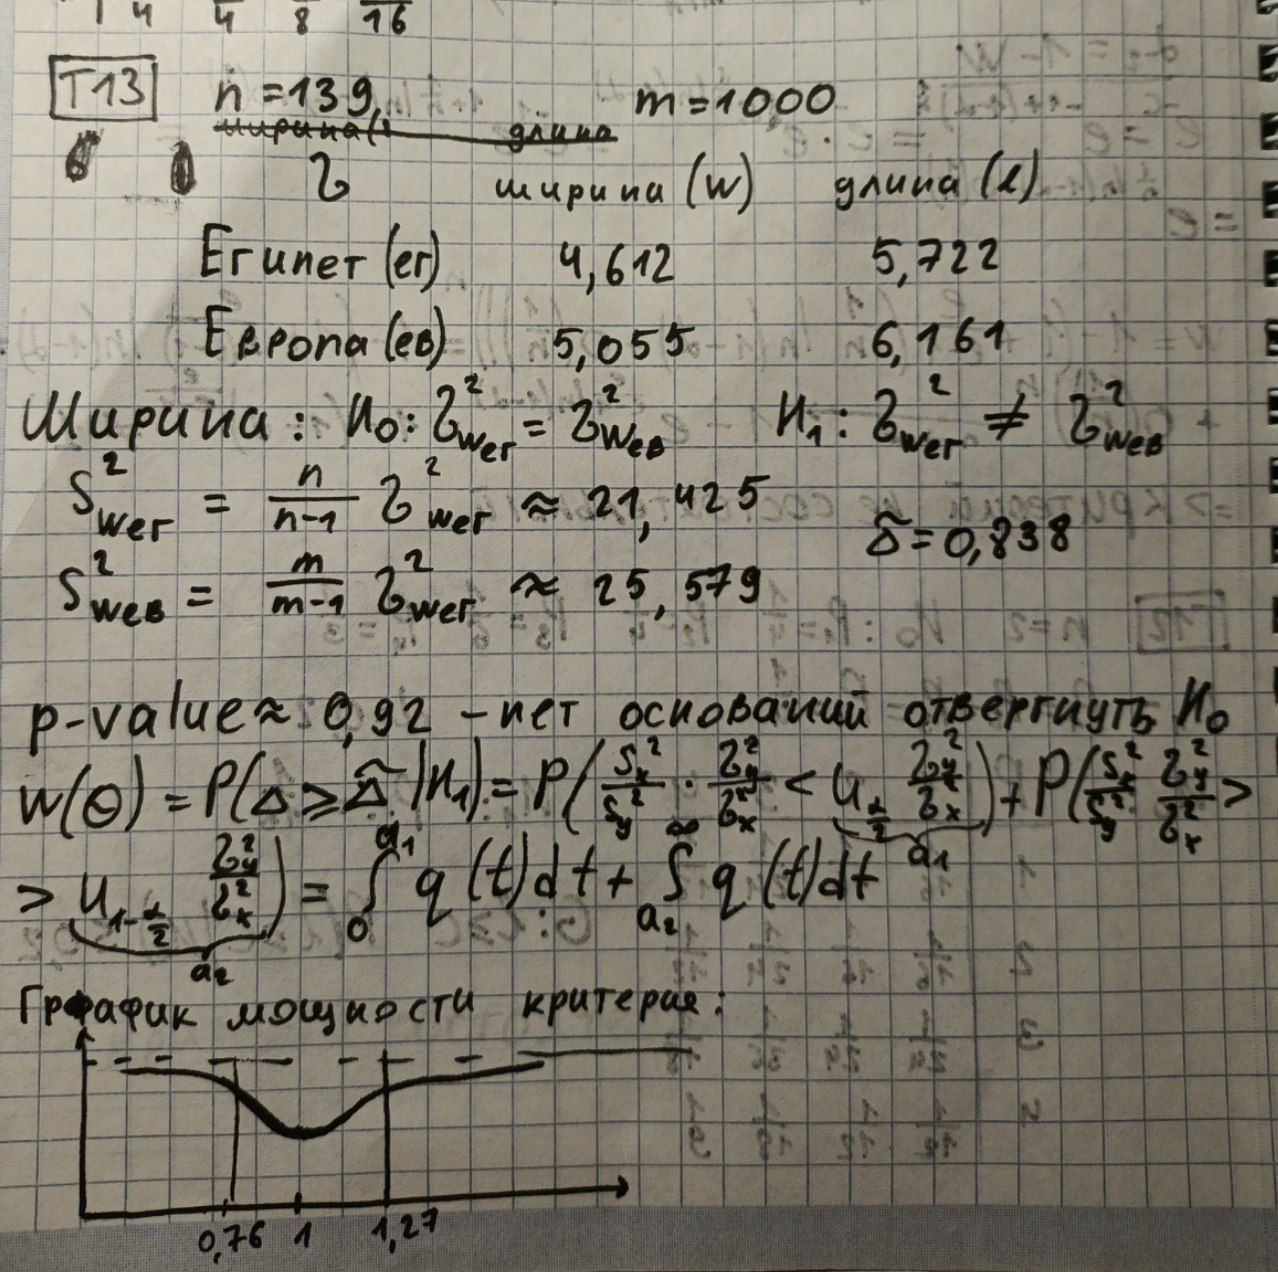 1 4 4 8 16
T13 n = 139, m = 1000
ширина ( длина
б ) σ ширина (w) длина (l)
Египет (ег) 4,612 5,722
Европа (ев) 5,055 6,161
Ширина: H₀: σ²wег = σ²wев H₁: σ²wег ≠ σ²wев
S²wег = n/(n-1) σ²wег ≈ 21,425
Δ̃ = 0,838
S²wев = m/(m-1) σ²wег ≈ 25,579
p-value ≈ 0,92 – нет оснований отвергнуть H₀
W(θ) = P(Δ ⩾ Δ̃ | H₁) = P(Sx²/Sy² · σy²/σx² < u_α/2 σy²/σx²) + P(Sx²/Sy² σy²/σx² >
a₁
> u_1-α/2 σy²/σx²) = ∫₀^a₁ q(t)dt + ∫_a₂^∞ q(t)dt
a₂
График мощности критерия:
0,76 1 1,27